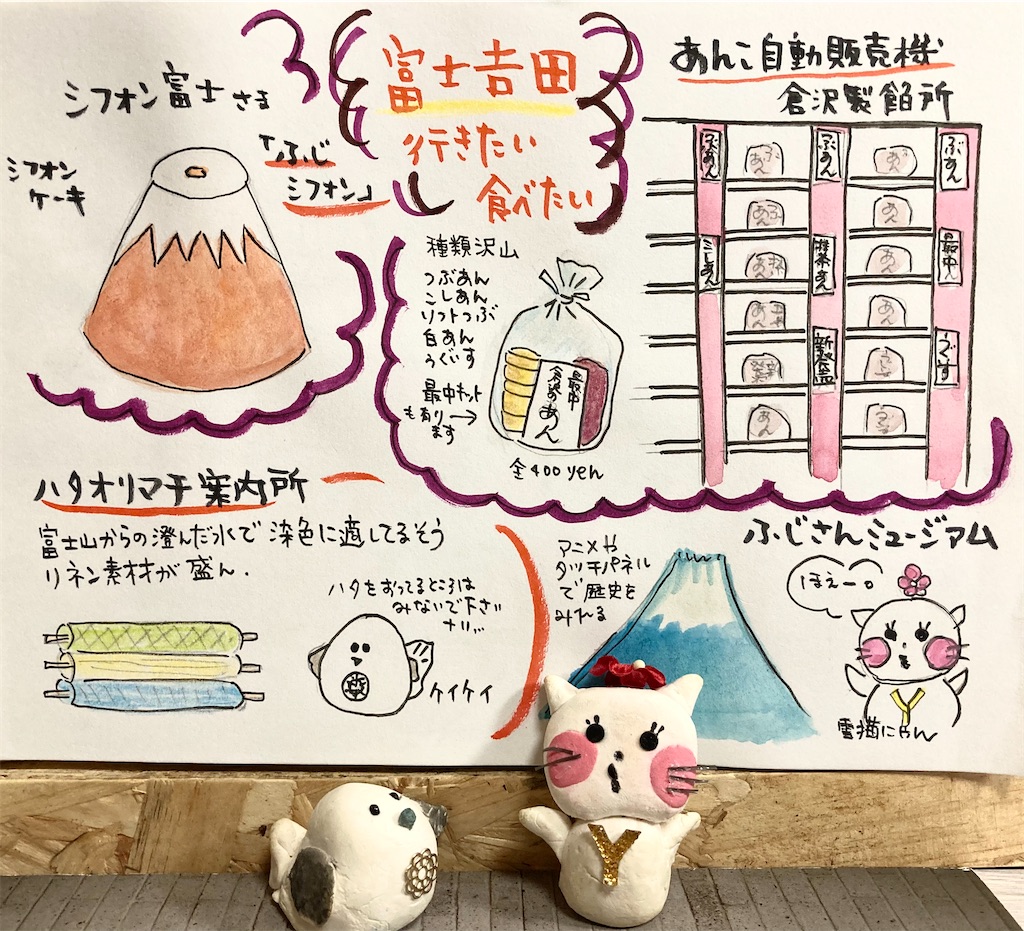 富士吉田
行きたい
食べたい
シフォン富士さま
シフォン
ケーキ
「ふじ
シフォン」
あんこ自動販売機
倉沢製餡所
種類沢山
つぶあん
こしあん
ソフトつぶ
白あん
うぐいす
最中キット
も有り→
ます
最中
倉沢のあん
全400yen
つぶあん
つぶあん
つぶあん
こしあん
抹茶あん
最中ん
うぐいす
ハタオリマチ案内所
富士山からの澄んだ水で染色に適してるそう
リネン素材が盛ん.
ハタをおってるところは
みないで下さい
ナリ...
ケイケイ
ふじさんミュージアム
アニメや
タッチパネル
で歴史を
みれる
ほえー。
Y
雪猫にゃん
Y